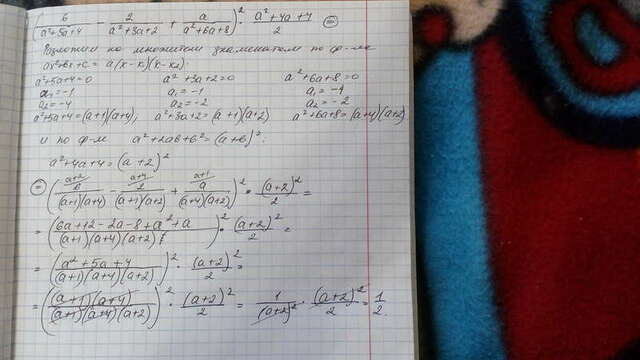 (6/(a²+5a+4) - 2/(a²+3a+2) + a/(a²+6a+8))² · (a²+4a+4)/2 =
Разложим на множители знаменатели по ф-ле
ax²+bx+c = a(x-x₁)(x-x₂).
a²+5a+4=0 a²+3a+2=0 a²+6a+8=0
a₁=-1 a₁=-1 a₁=-4
a₂=-4 a₂=-2 a₂=-2
a²+5a+4=(a+1)(a+4), a²+3a+2=(a+1)(a+2) a²+6a+8=(a+4)(a+2)
и по ф-ле a²+2ab+b²=(a+b)².
a²+4a+4=(a+2)²
= (6 (a+2)/((a+1)(a+4)) - 2 (a+4)/((a+1)(a+2)) + a (a+1)/((a+4)(a+2)))² · (a+2)²/2 =
= ((6a+12-2a-8+a²+a)/((a+1)(a+4)(a+2)))² · (a+2)²/2 =
= ((a²+5a+4)/((a+1)(a+4)(a+2)))² · (a+2)²/2 =
= (((a+1)(a+4))/((a+1)(a+4)(a+2)))² · (a+2)²/2 = 1/(a+2)² · (a+2)²/2 = 1/2.